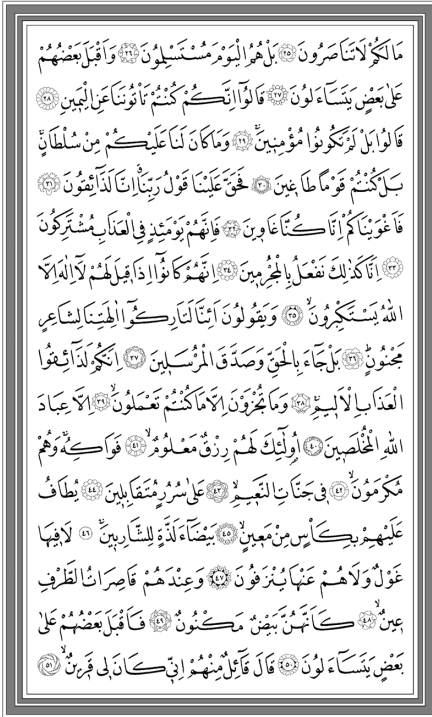 مَا لَكُمْ لَا تَنَاصَرُونَ ﴿٢٥﴾ بَلْ هُمُ الْيَوْمَ مُسْتَسْلِمُونَ ﴿٢٦﴾ وَاَقْبَلَ بَعْضُهُمْ
عَلٰى بَعْضٍ يَتَسَٓاءَلُونَ ﴿٢٧﴾ قَالُٓوا اِنَّكُمْ كُنْتُمْ تَأْتُونَنَا عَنِ الْيَمِينِ ﴿٢٨﴾
قَالُوا بَلْ لَمْ تَكُونُوا مُؤْمِنِينَۚ ﴿٢٩﴾ وَمَا كَانَ لَنَا عَلَيْكُمْ مِنْ سُلْطَانٍۚ
بَلْ كُنْتُمْ قَوْمًا طَاغِينَ ﴿٣٠﴾ فَحَقَّ عَلَيْنَا قَوْلُ رَبِّنَاۗ اِنَّا لَذَٓائِقُونَ ﴿٣١﴾
فَاَغْوَيْنَاكُمْ اِنَّا كُنَّا غَاوِينَ ﴿٣٢﴾ فَاِنَّهُمْ يَوْمَئِذٍ فِي الْعَذَابِ مُشْتَرِكُونَ
﴿٣٣﴾ اِنَّا كَذٰلِكَ نَفْعَلُ بِالْمُجْرِمِينَ ﴿٣٤﴾ اِنَّهُمْ كَانُٓوا اِذَا قِيلَ لَهُمْ لَٓا اِلٰهَ اِلَّا
اللّٰهُ يَسْتَكْبِرُونَۙ ﴿٣٥﴾ وَيَقُولُونَ اَئِنَّا لَتَارِكُٓوا اٰلِهَتِنَا لِشَاعِرٍ
مَجْنُونٍۜ ﴿٣٦﴾ بَلْ جَٓاءَ بِالْحَقِّ وَصَدَّقَ الْمُرْسَلِينَ ﴿٣٧﴾ اِنَّكُمْ لَذَٓائِقُوا
الْعَذَابِ الْاَلِيمِۚ ﴿٣٨﴾ وَمَا تُجْزَوْنَ اِلَّا مَا كُنْتُمْ تَعْمَلُونَۙ ﴿٣٩﴾ اِلَّا عِبَادَ
اللّٰهِ الْمُخْلَصِينَ ﴿٤٠﴾ اُو۬لٰٓئِكَ لَهُمْ رِزْقٌ مَعْلُومٌۙ ﴿٤١﴾ فَوَاكِهُۚ وَهُمْ
مُكْرَمُونَۙ ﴿٤٢﴾ فِي جَنَّاتِ النَّعِيمِۙ ﴿٤٣﴾ عَلٰى سُرُرٍ مُتَقَابِلِينَ ﴿٤٤﴾ يُطَافُ
عَلَيْهِمْ بِكَأْسٍ مِنْ مَعِينٍۙ ﴿٤٥﴾ بَيْضَٓاءَ لَذَّةٍ لِلشَّارِبِينَۚ ﴿٤٦﴾ لَا فِيهَا
غَوْلٌ وَلَا هُمْ عَنْهَا يُنْزَفُونَ ﴿٤٧﴾ وَعِنْدَهُمْ قَاصِرَاتُ الطَّرْفِ
عِينٌۙ ﴿٤٨﴾ كَاَنَّهُنَّ بَيْضٌ مَكْنُونٌ ﴿٤٩﴾ فَاَقْبَلَ بَعْضُهُمْ عَلٰى
بَعْضٍ يَتَسَٓاءَلُونَ ﴿٥٠﴾ قَالَ قَٓائِلٌ مِنْهُمْ اِنِّي كَانَ لِي قَرِينٌۙ ﴿٥١﴾